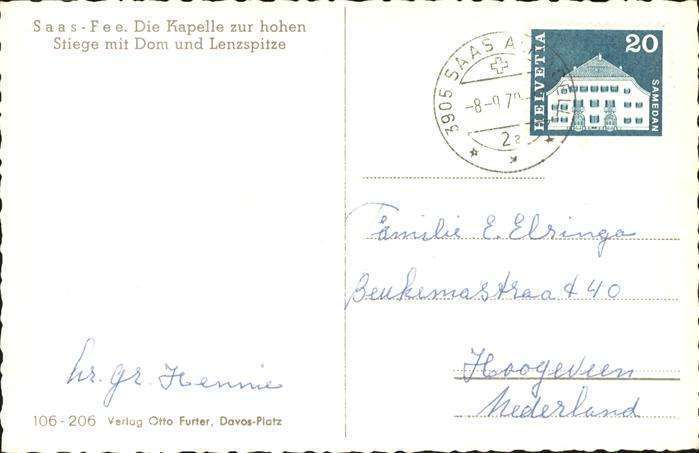 Saas-Fee. Die Kapelle zur hohen
Stiege mit Dom und Lenzspitze
HELVETIA
20
SAMEDAN
3905 SAAS A
-8-9.7
2a
Familie E. Elringa
Beukemastraat 40
Hoogeveen
Nederland
hr. gr. Hennie
106-206 Verlag Otto Furter, Davos-Platz